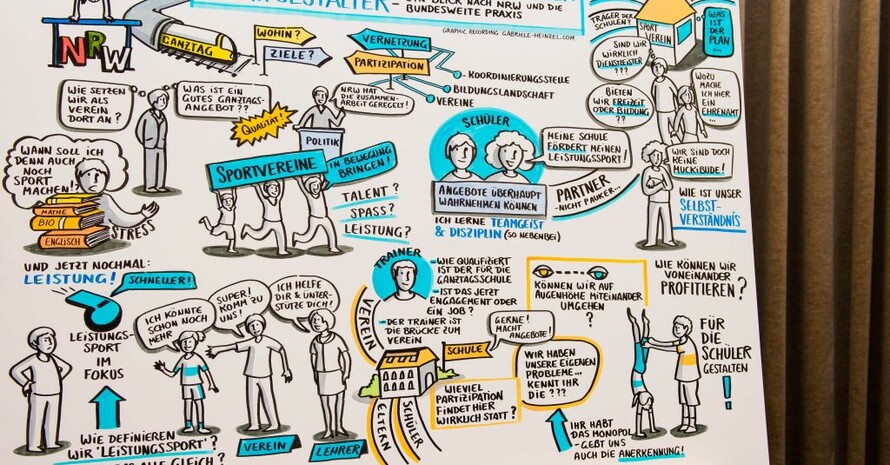 GESTALTER - EIN BLICK NACH NRW UND DIE
BUNDESWEITE PRAXIS
GRAPHIC RECORDING GABRIELE-HEINZEL.COM
NRW
GANZTAG
WOHIN?
ZIELE?
VERNETZUNG
PARTIZIPATION
- KOORDINIERUNGSSTELLE
BILDUNGSLANDSCHAFT
VEREINE
TRÄGER DER
SCHULEN?
SPORT
VEREIN
WAS IST
DER
PLAN...
SIND WIR
WIRKLICH
DIENSTLEISTER
???
BIETEN
WIR FREIZEIT
ODER BILDUNG
??
WOZU
MACHE
ICH HIER
EIN
EHRENAMT?
WIE SETZEN
WIR ALS
VEREIN
DORT AN?
WAS IST EIN
GUTES GANZTAGS-
ANGEBOT??
QUALITÄT!
NRW HAT
DIE ZUSAMMEN-
ARBEIT GEREGELT!
POLITIK
SCHÜLER
MEINE SCHULE
FÖRDERT MEINEN
LEISTUNGSSPORT!
ANGEBOTE ÜBERHAUPT
WAHRNEHMEN KÖNNEN
PARTNER
-NICHT PAUKER...
ICH LERNE TEAMGEIST
& DISZIPLIN (SO NEBENBEI)
WIR SIND DOCH
KEINE
MUCKIBUDE!
WIE IST UNSER
SELBST-
VERSTÄNDNIS
WANN SOLL ICH
DENN AUCH
NOCH
SPORT
MACHEN!?
MATHE
BIO
ENGLISCH
STRESS
SPORTVEREINE
IN BEWEGUNG
BRINGEN!
TALENT?
SPASS?
LEISTUNG?
UND JETZT NOCHMAL:
LEISTUNG!
SCHNELLER!
LEISTUNGS-
SPORT IM
FOKUS
WIE DEFINIEREN
WIR 'LEISTUNGSSPORT'?
ALLE GLEICH?
ICH KÖNNTE
SCHON NOCH
MEHR
SUPER!
KOMM ZU
UNS!
ICH HELFE
DIR & UNTER-
STÜTZE DICH!
VEREIN
LEHRER
TRAINER
-WIE QUALIFIZIERT
IST DER FÜR DIE
GANZTAGSSCHULE
- IST DAS JETZT
ENGAGEMENT ODER
EIN JOB?
- DER TRAINER IST
DIE BRÜCKE ZUM
VEREIN
VEREIN
SCHULE
GERNE!
MACHT
ANGEBOTE!
ELTERN
SCHÜLER
WIEVIEL
PARTIZIPATION
FINDET HIER
WIRKLICH STATT?
WIR HABEN
UNSERE EIGENEN
PROBLEME...
KENNT IHR
DIE ???
KÖNNEN WIR AUF
AUGENHÖHE MITEINANDER
UMGEHEN
?
WIE KÖNNEN WIR
VONEINANDER
PROFITIEREN?
FÜR
DIE
SCHÜLER
GESTALTEN
!
IHR HABT
DAS MONOPOL
-GEBT UNS
AUCH DIE ANERKENNUNG!